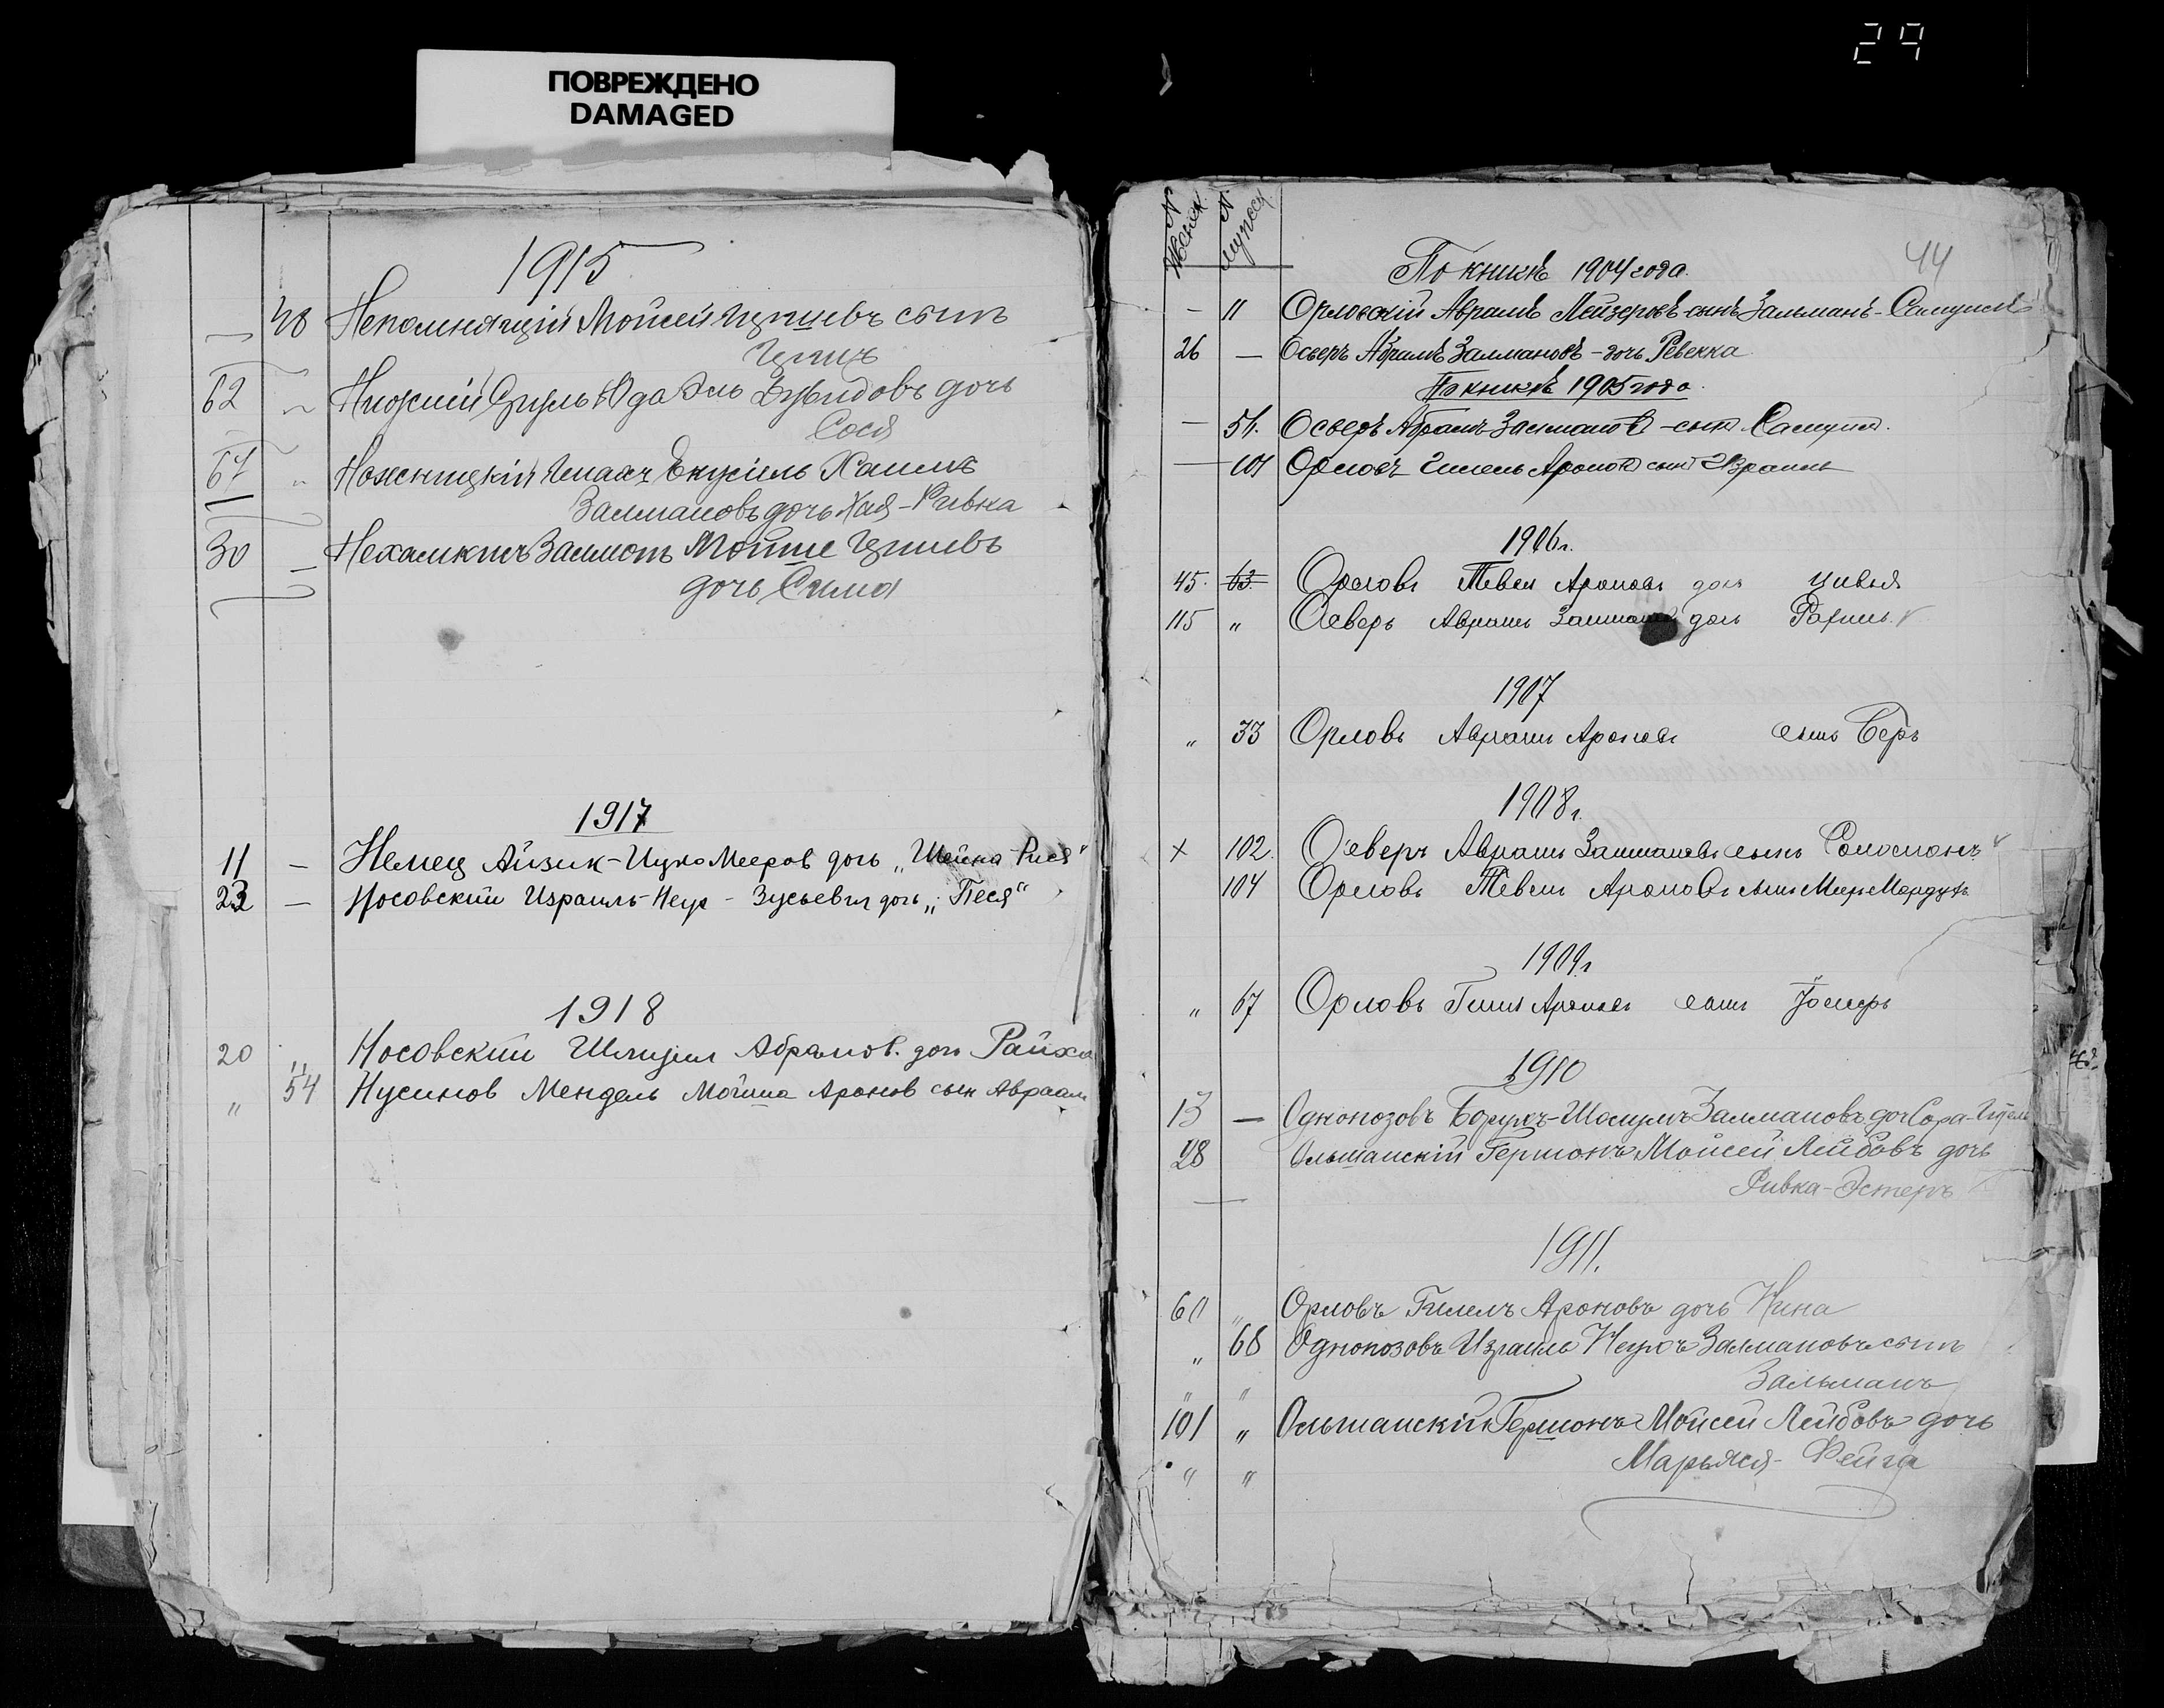 29
ПОВРЕЖДЕНО
DAMAGED
1915
— 48 Непомнящій Мойсей Ицшиевъ сынъ
62 Сруль Юда Дувидовъ дочь
Сося
67 " Ноженицкій Екусіль Хаимъ
Залмановъ дочь Хая-Ривка
30 — Нехамкинъ Залманъ Мойше
дочь Сима
1917
11 — Немец Айзик-Ицко Мееров дочь „Шейна-Рися"
23 — Носовский Израиль-Неух-Зусьевич дочь „Песя"
1918
20 " Носовский Шмуил Абрамов. дочь Райха
" 54 Нусинов Мендель Мойша Аронов сын Авраам
N женск. N мужеск.
44
По книгѣ 1904 года.
— 11 Орловскій Аврамъ Лейзеровъ сынъ Зальманъ-Самуилъ
26 — Осверъ Абрамъ Залмановъ - дочь Ревекка
По книгѣ 1905 года.
— 51. Осверъ Абрамъ Залмановъ - сынъ Самуилъ.
— 101 Орловъ Гилель Ароновъ сынъ Израиль
1906г.
45. 63. Орловъ Тевель Ароновъ дочь Цивья
115 " Осверъ Аврамъ Залмановъ дочь Рахиль
1907
" 33 Орловъ Аврамъ Ароновъ сынъ Беръ
1908г.
x 102. Осверъ Аврамъ Залмановъ сынъ Соломонъ
104 Орловъ Тевель Ароновъ сынъ Меер Мордухъ
1909г
" 67 Орловъ Гилель Ароновъ сынъ Іосифъ
1910
13 — Однопозовъ Борухъ-Шолумъ Залмановъ доч Сора-Гитель
28 Ольшанскій Гершонъ Мойсей Лейбовъ дочь
Ривка-Эстеръ
1911.
60 " Орловъ Гилелъ Ароновъ дочь Нина
" 68 Однопозовъ Израиль Неухъ Залмановъ сынъ
" " Зальманъ
101 " Ольшанскій Гершонъ Мойсей Лейбовъ дочь
" " Марьяся-Фейга